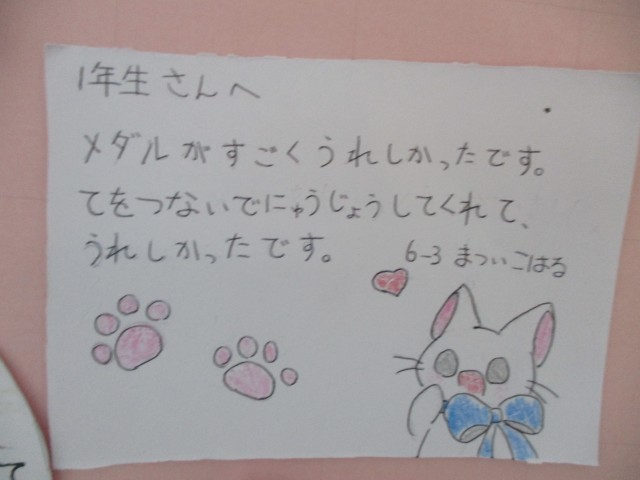 1年生さんへ
メダルがすごくうれしかったです。
てをつないでにゅうじょうしてくれて、
うれしかったです。
6-3 まついこはる
て